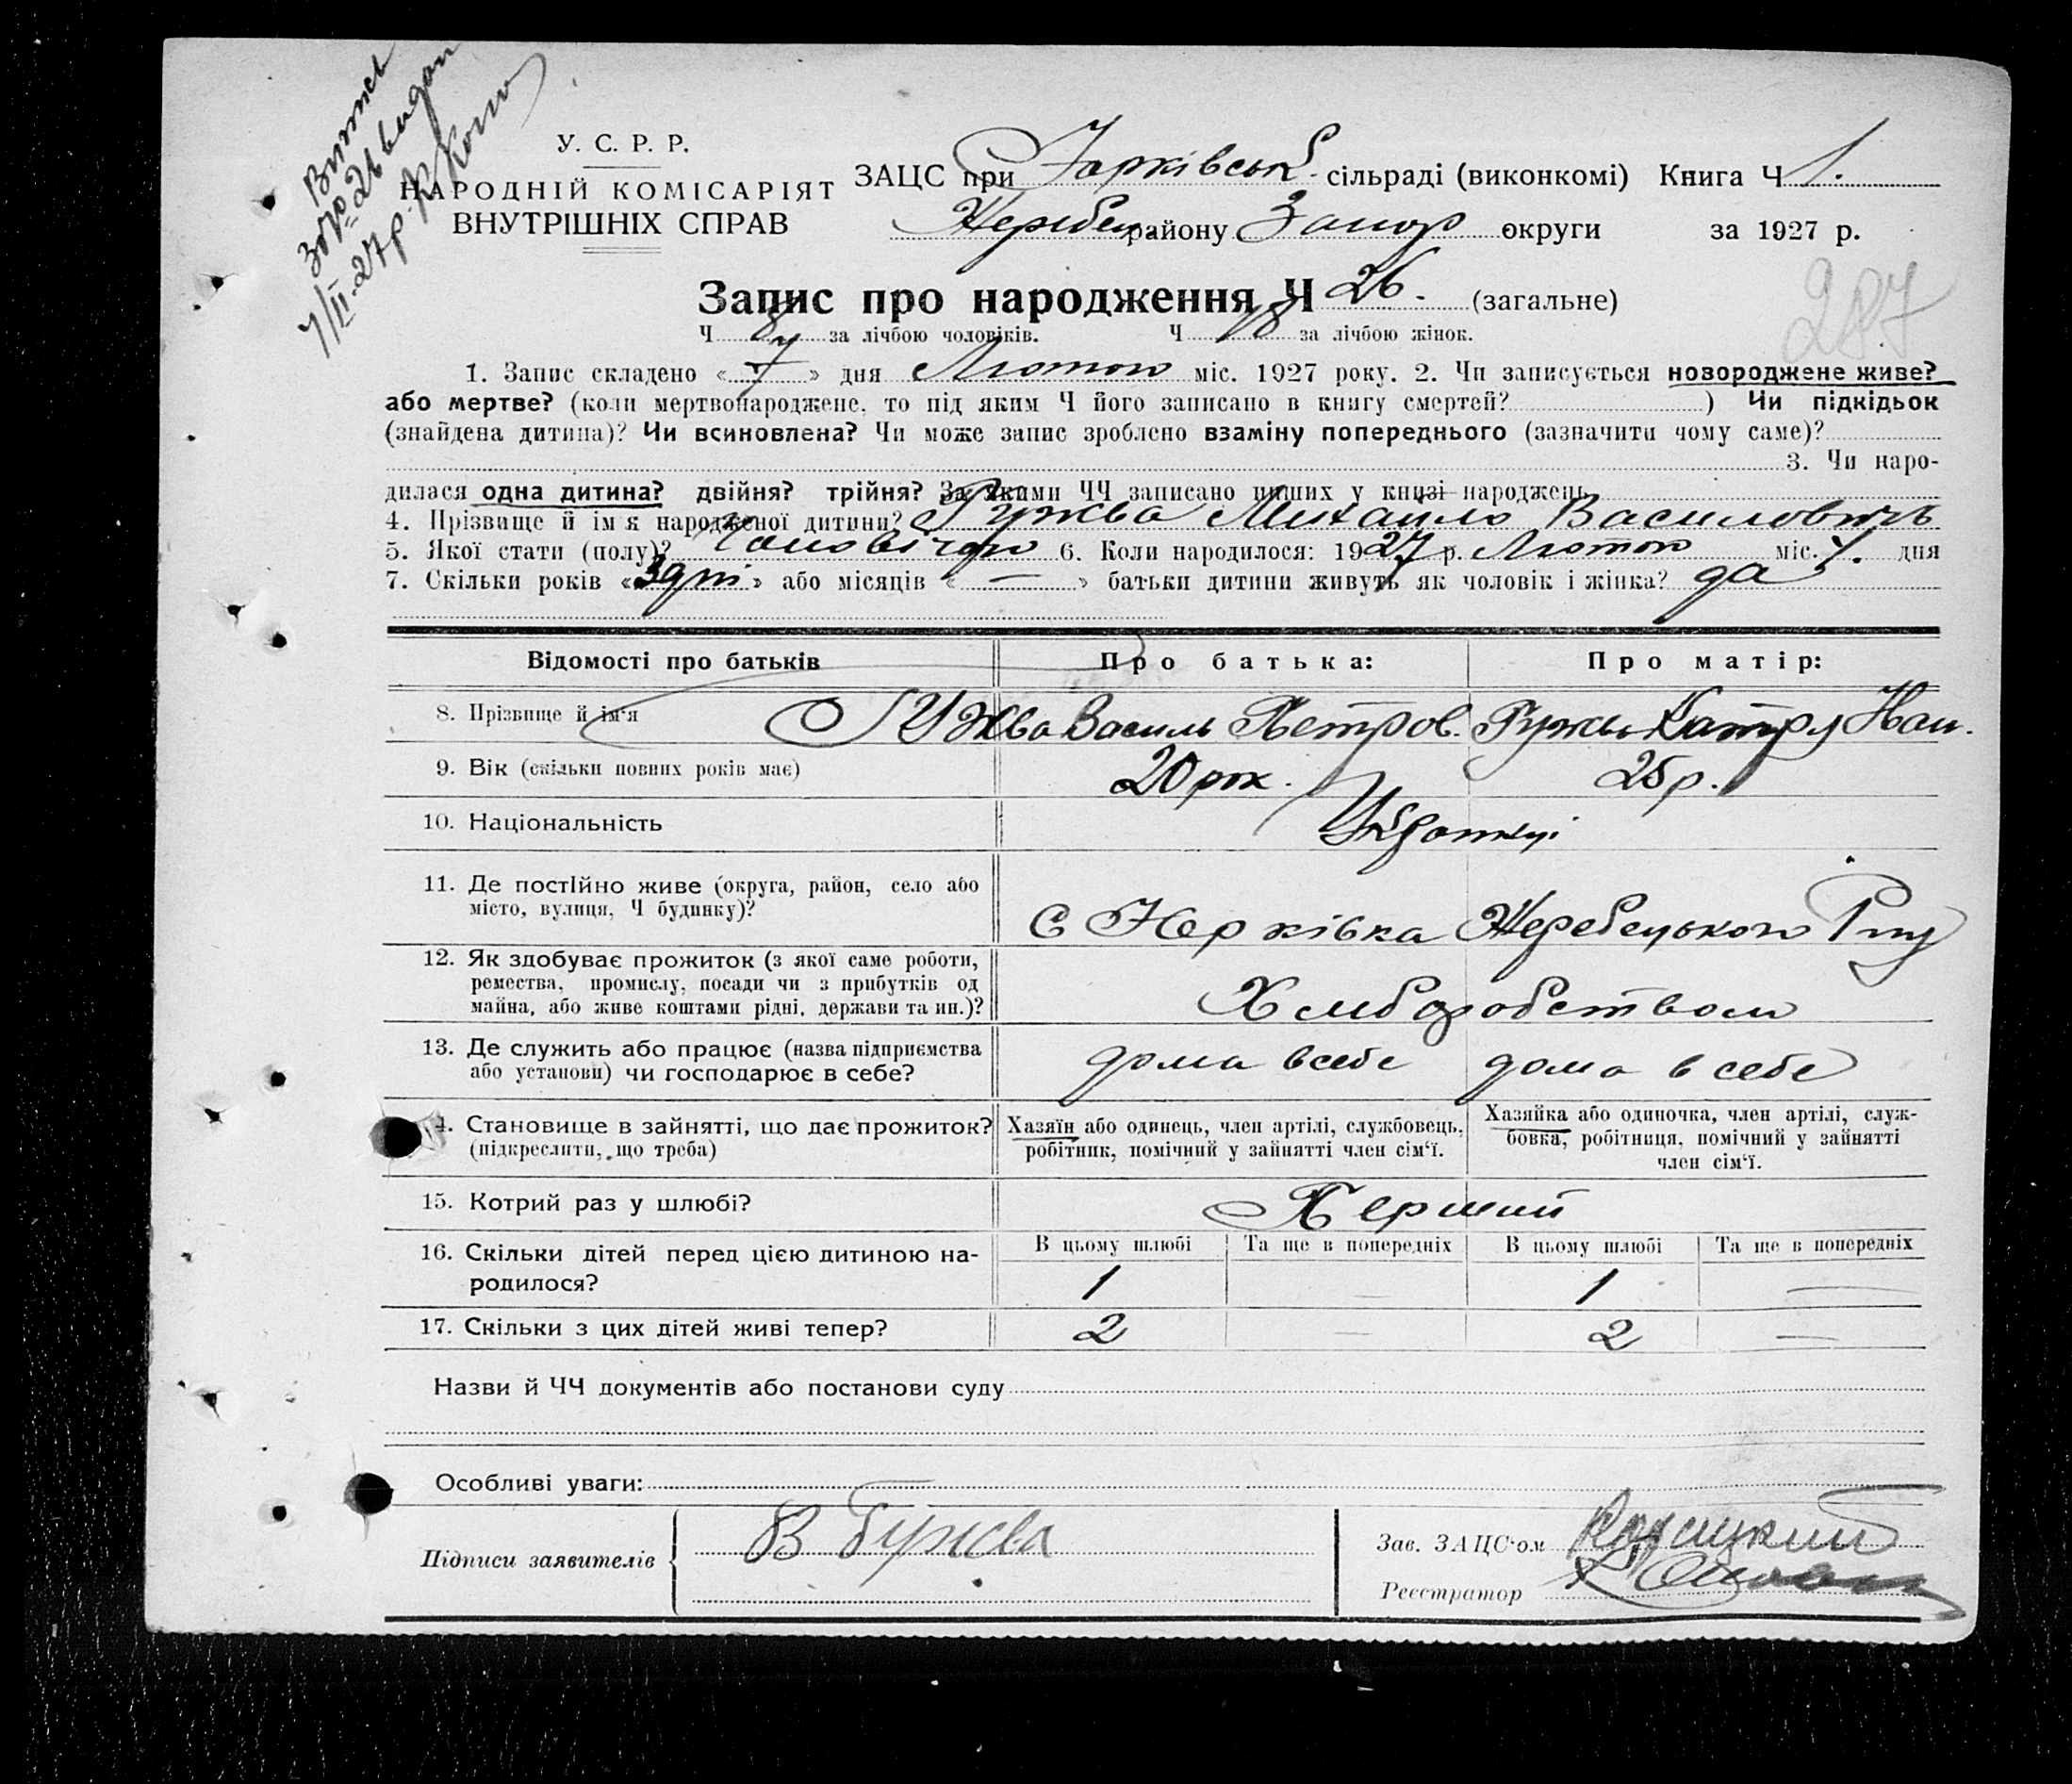 Витяг
за № 26 видан
7/II-27р.
У. С. Р. Р.
НАРОДНІЙ КОМІСАРІЯТ
ВНУТРІШНІХ СПРАВ
ЗАЦС при сільраді (виконкомі) Книга Ч 1.
Жеребец. району Запор округи за 1927 р.
287
Запис про народження Ч 26. (загальне)
Ч 8 за лічбою чоловіків. Ч 18 за лічбою жінок.
1. Запис складено «7» дня Лютого міс. 1927 року. 2. Чи записується новороджене живе?
або мертве? (коли мертвонароджене, то під яким Ч його записано в книгу смертей? ) Чи підкідьок
(знайдена дитина)? Чи всиновлена? Чи може запис зроблено взаміну попереднього (зазначити чому саме)?
3. Чи наро-
дилася одна дитина? двійня? трійня? За якими ЧЧ записано инших у книзі народжень
4. Прізвище й ім'я народженої дитини? Гужва Михайло Василович
5. Якої стати (полу)? Чоловічої 6. Коли народилося: 1927 р. Лютого міс. 4. дня
7. Скільки років «3 дні» або місяців « — » батьки дитини живуть як чоловік і жінка? да
Відомості про батьків Про батька: Про матір:
8. Прізвище й ім'я Гужва Василь Петров. Гужва Катря
9. Вік (скільки повних років має) 20 рок. 25 р.
10. Національність
11. Де постійно живе (округа, район, село або
місто, вулиця, Ч будинку)?
С Жеребецького
12. Як здобуває прожиток (з якої саме роботи,
ремества, промислу, посади чи з прибутків од
майна, або живе коштами рідні, держави та ин.)?
Хліборобством
13. Де служить або працює (назва підприємства
або установи) чи господарює в себе?
дома в себе дома в себе
4. Становище в зайнятті, що дає прожиток?
(підкреслити, що треба)
Хазяїн або одинець, член артілі, службовець,
робітник, помічний у зайнятті член сім'ї.
Хазяйка або одиночка, член артілі, служ-
бовка, робітниця, помічний у зайнятті
член сім'ї.
15. Котрий раз у шлюбі? Перший
16. Скільки дітей перед цією дитиною на-
родилося?
В цьому шлюбі Та ще в попередніх В цьому шлюбі Та ще в попередніх
1 — 1 —
17. Скільки з цих дітей живі тепер? 2 — 2 —
Назви й ЧЧ документів або постанови суду
Особливі уваги:
Підписи заявителів В Гужва
Зав. ЗАЦС'ом
Реєстратор